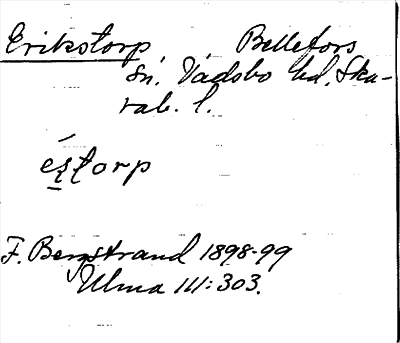 Erikstorp Bellefors
Sn. Vadsbo hd. Ska-
rab. l.
éstorp
F. Bergstrand 1898-99
Ulma 111:303.